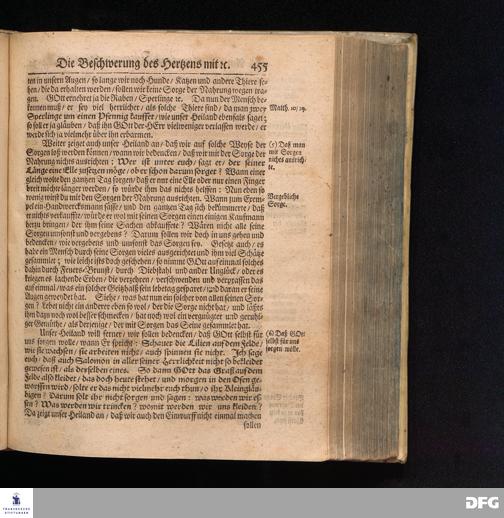 Die Beschwerung des Hertzens mit ꝛc. 455
ten in unsern Augen / so lange wir noch Hunde / Katzen und andere Thiere se-
hen / die da erhalten werden / sollen wir keine Sorge der Nahrung wegen tra-
gen. GOtt ernehret ja die Raben / Sperlinge ꝛc. Da nun der Mensch be-
kennen muß / er sey viel herrlicher / als solche Thiere sind / da man zwey
Sperlinge um einen Pfennig kauffet / wie unser Heiland ebenfals saget;
so soll er ja gläuben / daß ihn GOtt der HErr viel weniger verlassen werde / er
werde sich ja vielmehr über ihn erbarmen.
Matth. 10/29.
Weiter zeiget auch unser Heiland an / daß wir auf solche Weyse der
Sorgen loß werden können / wann wir bedencken / daß wir mit der Sorge der
Nahrung nichts ausrichten: Wer ist unter euch / sagt er / der seiner
Länge eine Elle zusetzen möge / ob er schon darum sorget? Wann einer
gleich wolte den gantzen Tag sorgen / daß er nur eine Elle oder nur einen Finger
breit möchte länger werden / so würde ihm das nichts helffen: Nun eben so
wenig wirst du mit den Sorgen der Nahrung ausrichten. Wann zum Exem-
pel ein Handwercksmann sässe / und den gantzen Tag sich bekümmerte / daß
er nichts verkauffte / würde er wol mit seinen Sorgen einen einigen Kauffmann
herzu bringen / der ihm seine Sachen abkauffete? Wären nicht alle seine
Sorgen umsonst und vergebens? Darum sollen wir doch in uns gehen und
bedencken / wie vergebens und umsonst das Sorgen sey. Gesetzt auch / es
habe ein Mensch durch seine Sorgen vieles ausgerichtet und ihm viel Schätze
gesammlet; wie leicht ists doch geschehen / so nimmt GOtt auf einmal solches
dahin durch Feuers-Brunst / durch Diebstahl und ander Unglück / oder es
kriegen es lachende Erben / die verzehren / verschwenden und verprassen das
auf einmal / was ein solcher Geitzhalß sein lebetag gesparet / und daran er seine
Augen geweydet hat. Siehe / was hat nun ein solcher von allen seinen Sor-
gen? Lebet nicht ein anderer eben so wol / der die Sorge nicht hat / und läßts
ihm dazu noch wol besser schmecken / hat noch wol ein vergnügter und geruhi-
ger Gemüthe / als derjenige / der mit Sorgen das Seine gesammlet hat.
(5) Daß man
mit Sorgen
nichts ausrich-
te.
Vergebliche
Sorge.
Unser Heiland will ferner / wir sollen bedencken / daß GOtt selbst für
uns sorgen wolle / wann Er spricht: Schauet die Lilien auf dem Felde /
wie sie wachsen / sie arbeiten nicht / auch spinnen sie nicht. Ich sage
euch / daß auch Salomon in aller seiner Herrlichkeit nicht so bekleidet
gewesen ist / als derselben eines. So dann GOtt das Graß auf dem
Felde also kleidet / das doch heute stehet / und morgen in den Ofen ge-
worffen wird / solte er das nicht vielmehr euch thun / o ihr Kleingläu-
bigen? Darum solt ihr nicht sorgen und sagen: was werden wir es-
sen? Was werden wir trincken? womit werden wir uns kleiden?
Da zeigt unser Heiland an / daß wir auch den Einwurff nicht einmal machen
sollen
(6) Daß GOtt
selbst für uns
sorgen wolle.
FRANCKESCHE
STIFTUNGEN
DFG